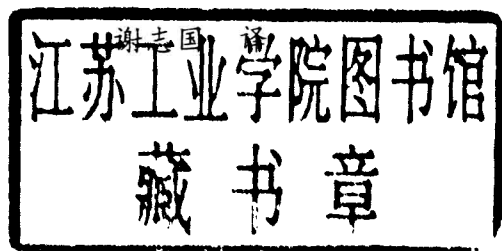 谢志国 译
江苏工业学院图书馆
藏书章